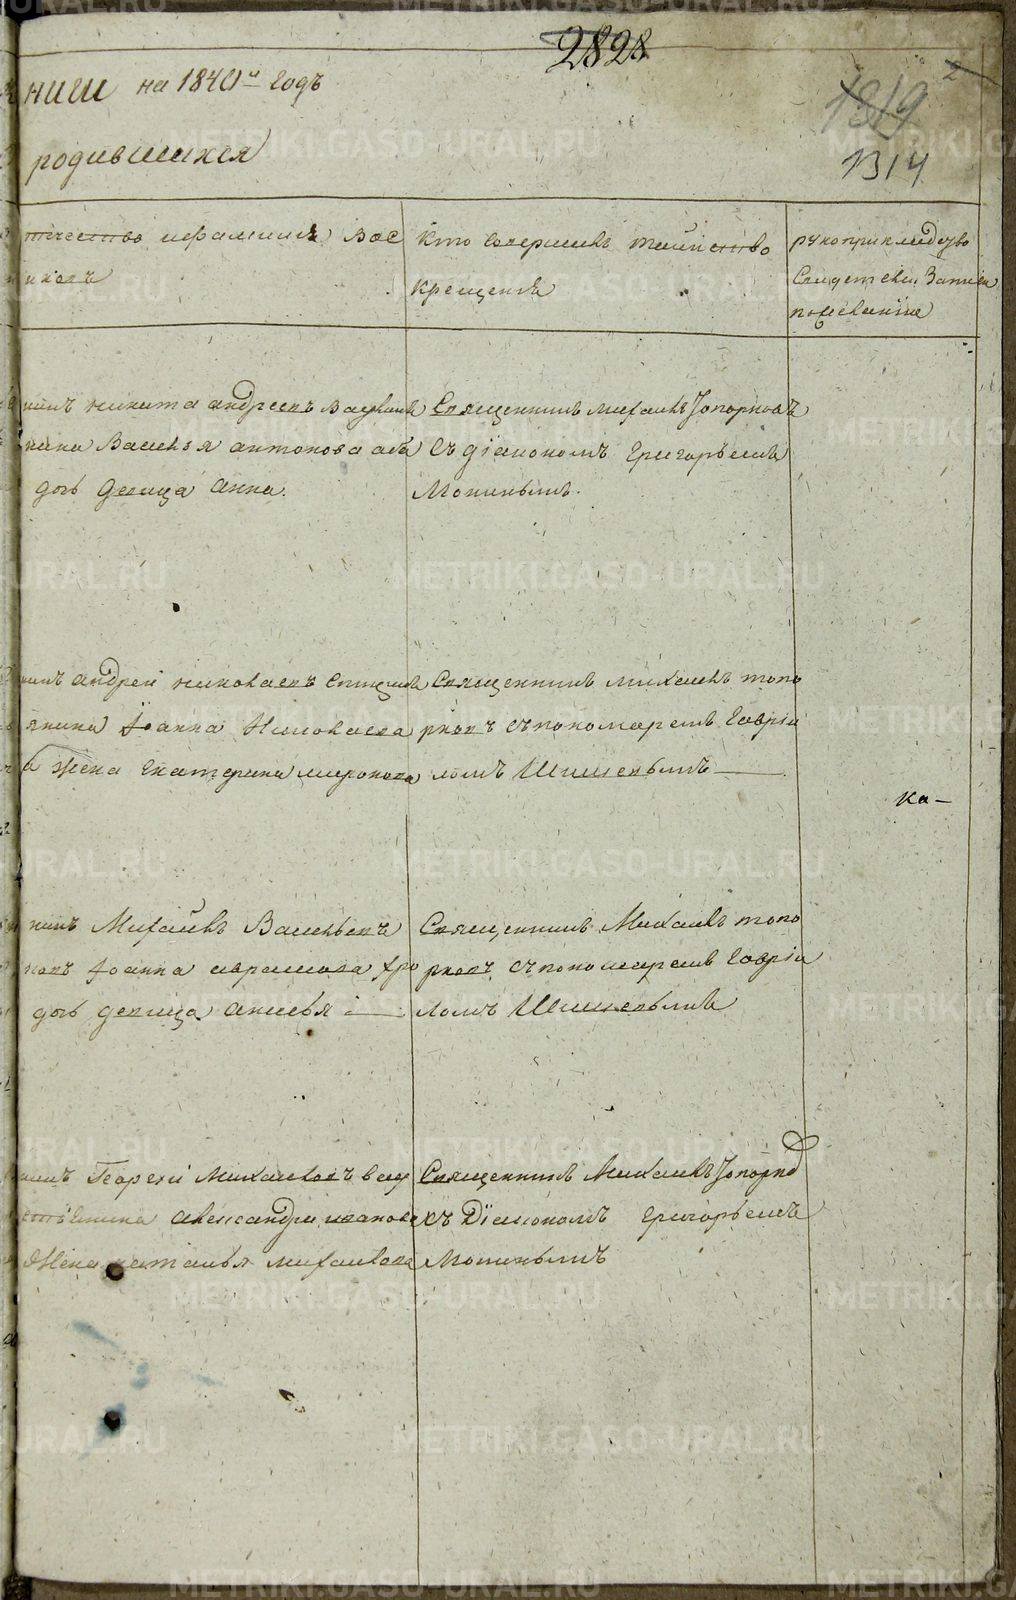 2828
ниги на 1840й годъ
1319
2
1314
родившихся
отчество ифамилиѣ Вос
никовъ
Кто Совершилъ таинство
крещенія
рукоприкладство
Свидетелей Записи
пожеланію
нинъ никита андреевъ
Василья антонова
дочь девица Анна.
Священникъ михаилъ Топорковъ
Съ діакономъ Григорьемъ
Мокинымъ.
нинъ андрей николаевъ Спицынъ
янина Іоанна Николаева
жена Екатерина миронова
Священникъ михаилъ топо
рковъ съ пономаремъ Гавріи
ломъ Шишевымъ
ка-
нинъ Михайлъ Васильевъ
Іоанна аврамова
дочь девица Анисья
Священникъ Михаилъ топо
рковъ съ пономаремъ Гавріи
ломъ Шишевымъ
нинъ Георгій Михаиловъ
александра иванова
жена наталья михаилова
Священникъ Михаилъ Топорков
съ Діакономъ Григорьемъ
Мокинымъ
METRIKI.GASO-URAL.RU